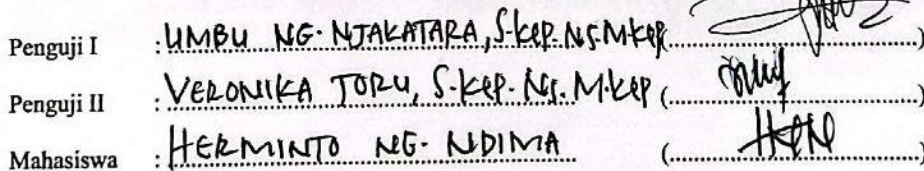 Penguji I : UMBU NG. NJAKATARA, S.kep. Ns. M.kep (....................)
Penguji II : VERONIKA TORU, S.kep. Ns. M.kep (....................)
Mahasiswa : HERMINTO NG. NDIMA (....................)